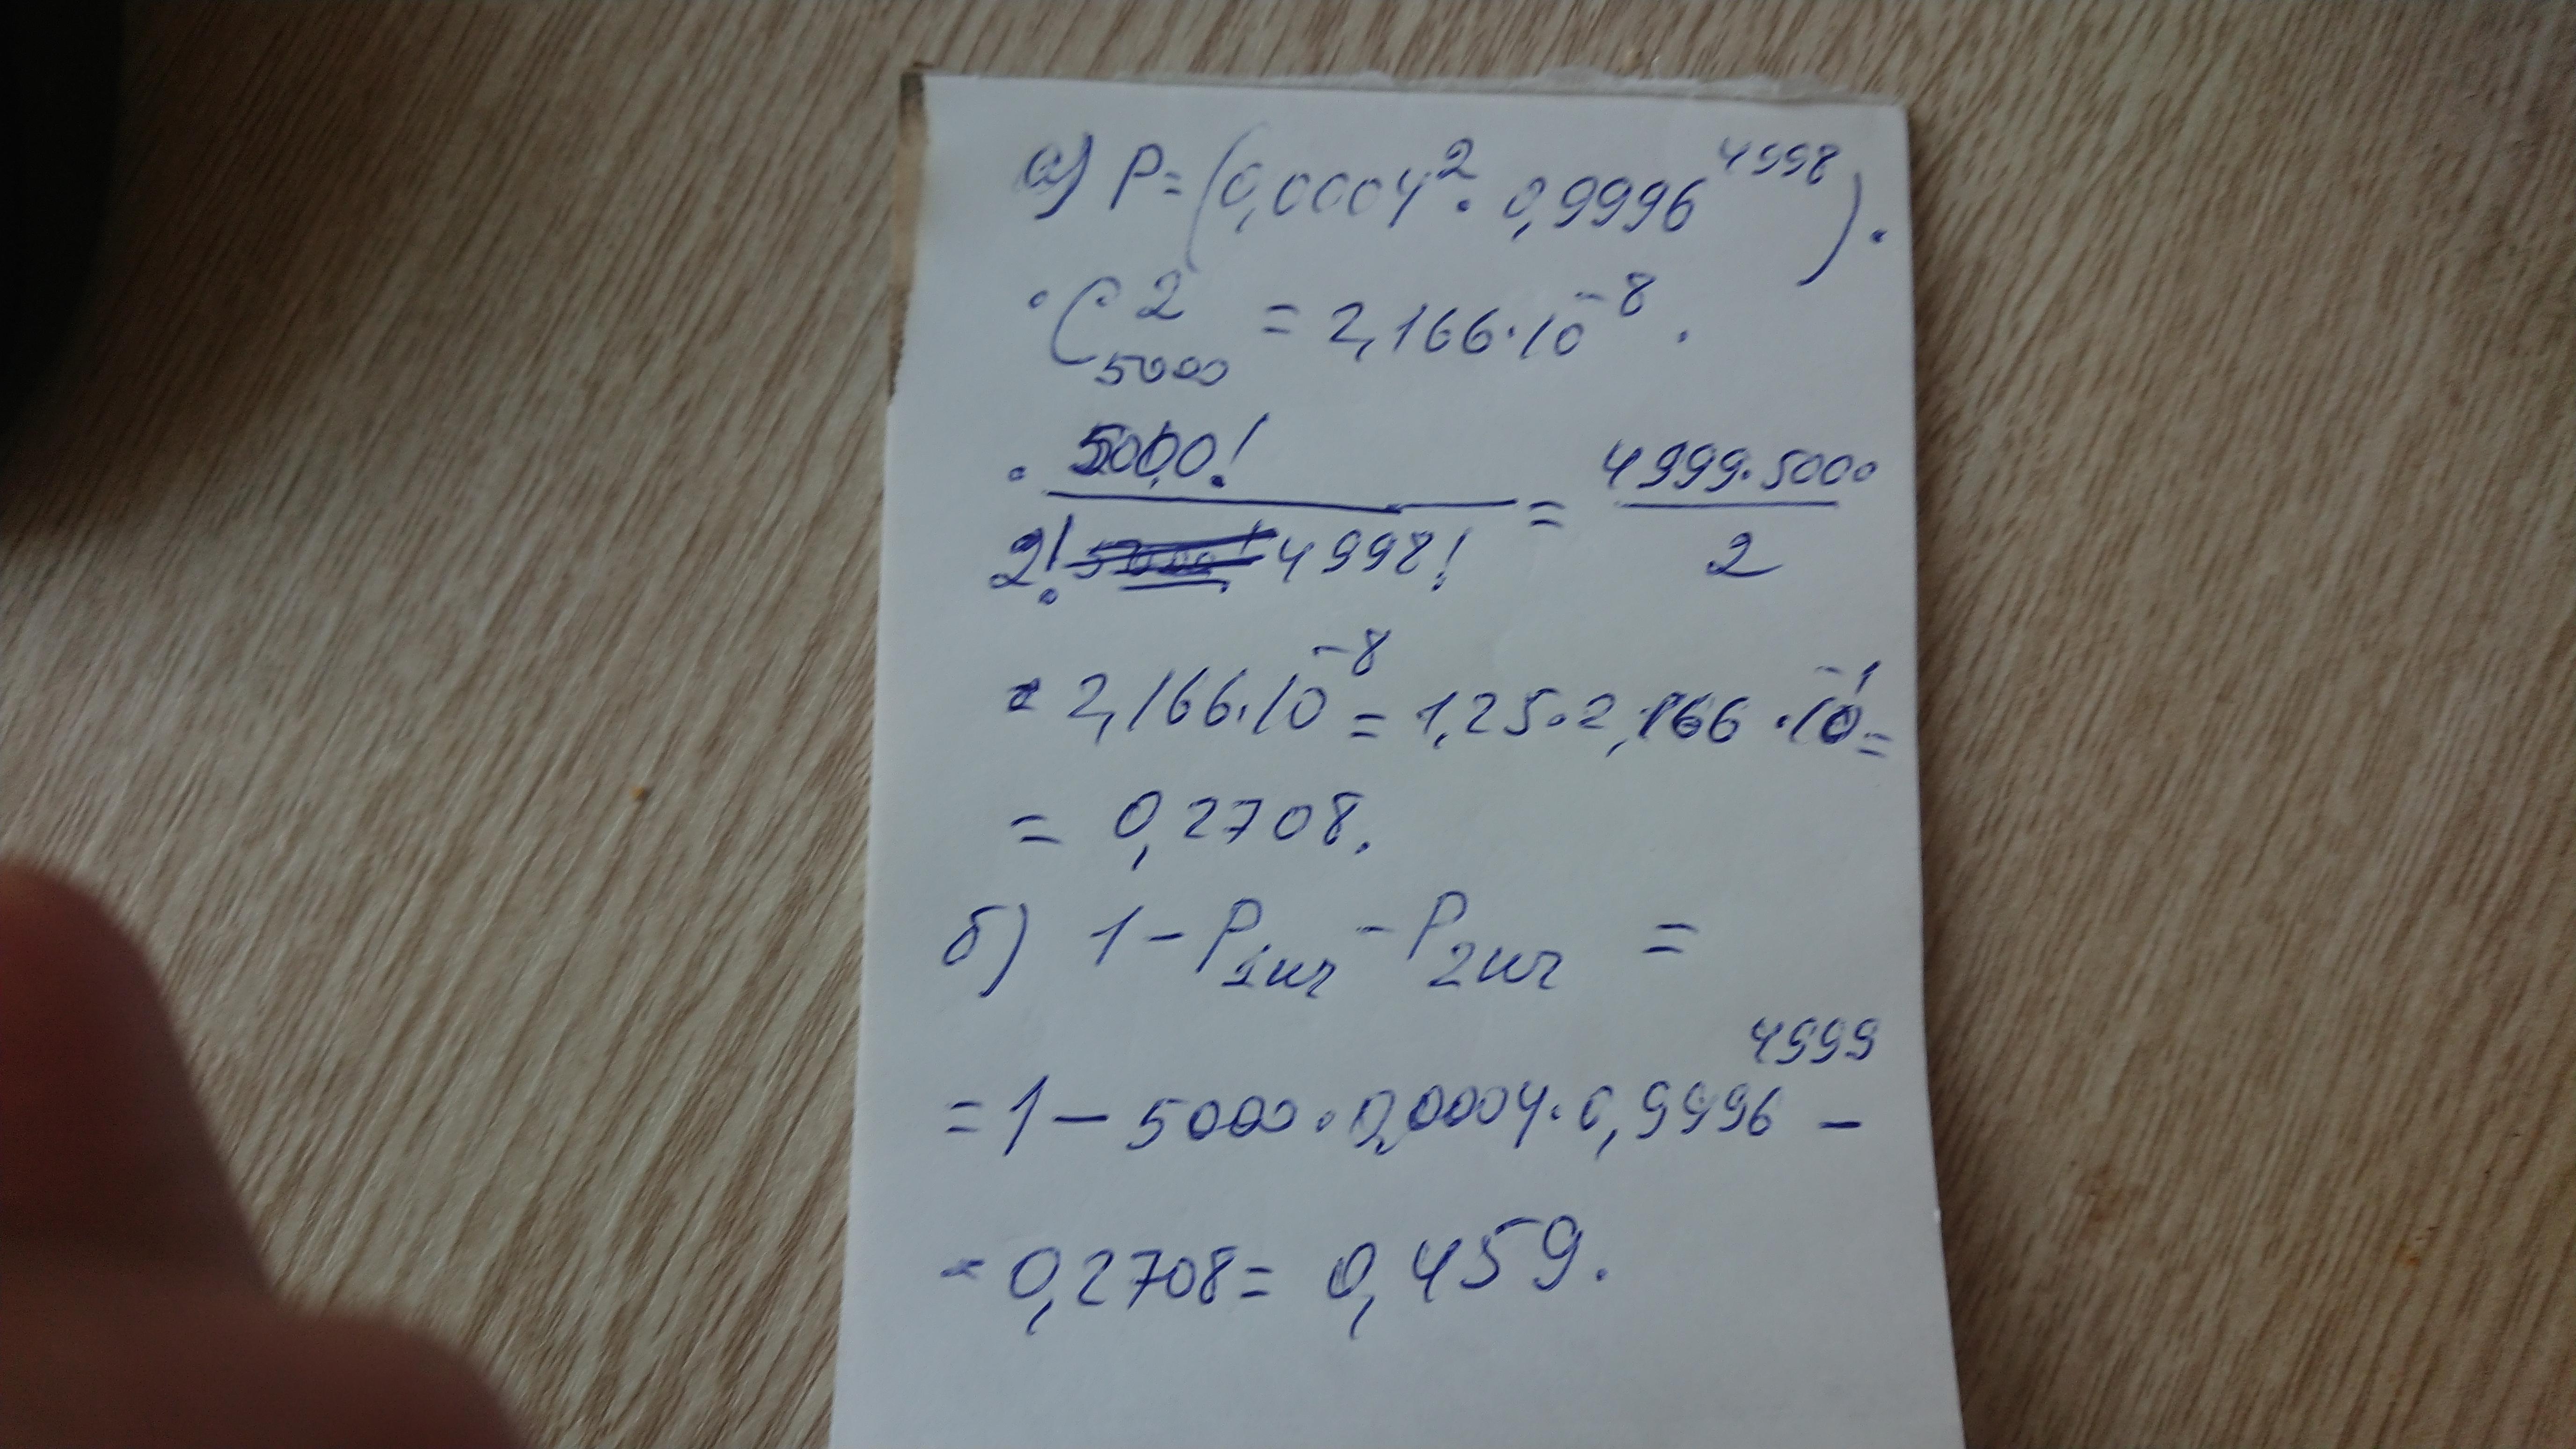 а) P=(0,0004²·0,9996⁴⁹⁹⁸)·
·C²₅₀₀₀ = 2,166·10⁻⁸·
· 5000! / 2! 4998! = 4999·5000 / 2
· 2,166·10⁻⁸ = 1,25·2,166·10⁻¹=
= 0,2708.
б) 1-P₁шт-P₂шт =
=1-5000·0,0004·0,9996⁴⁹⁹⁹-
-0,2708= 0,459.